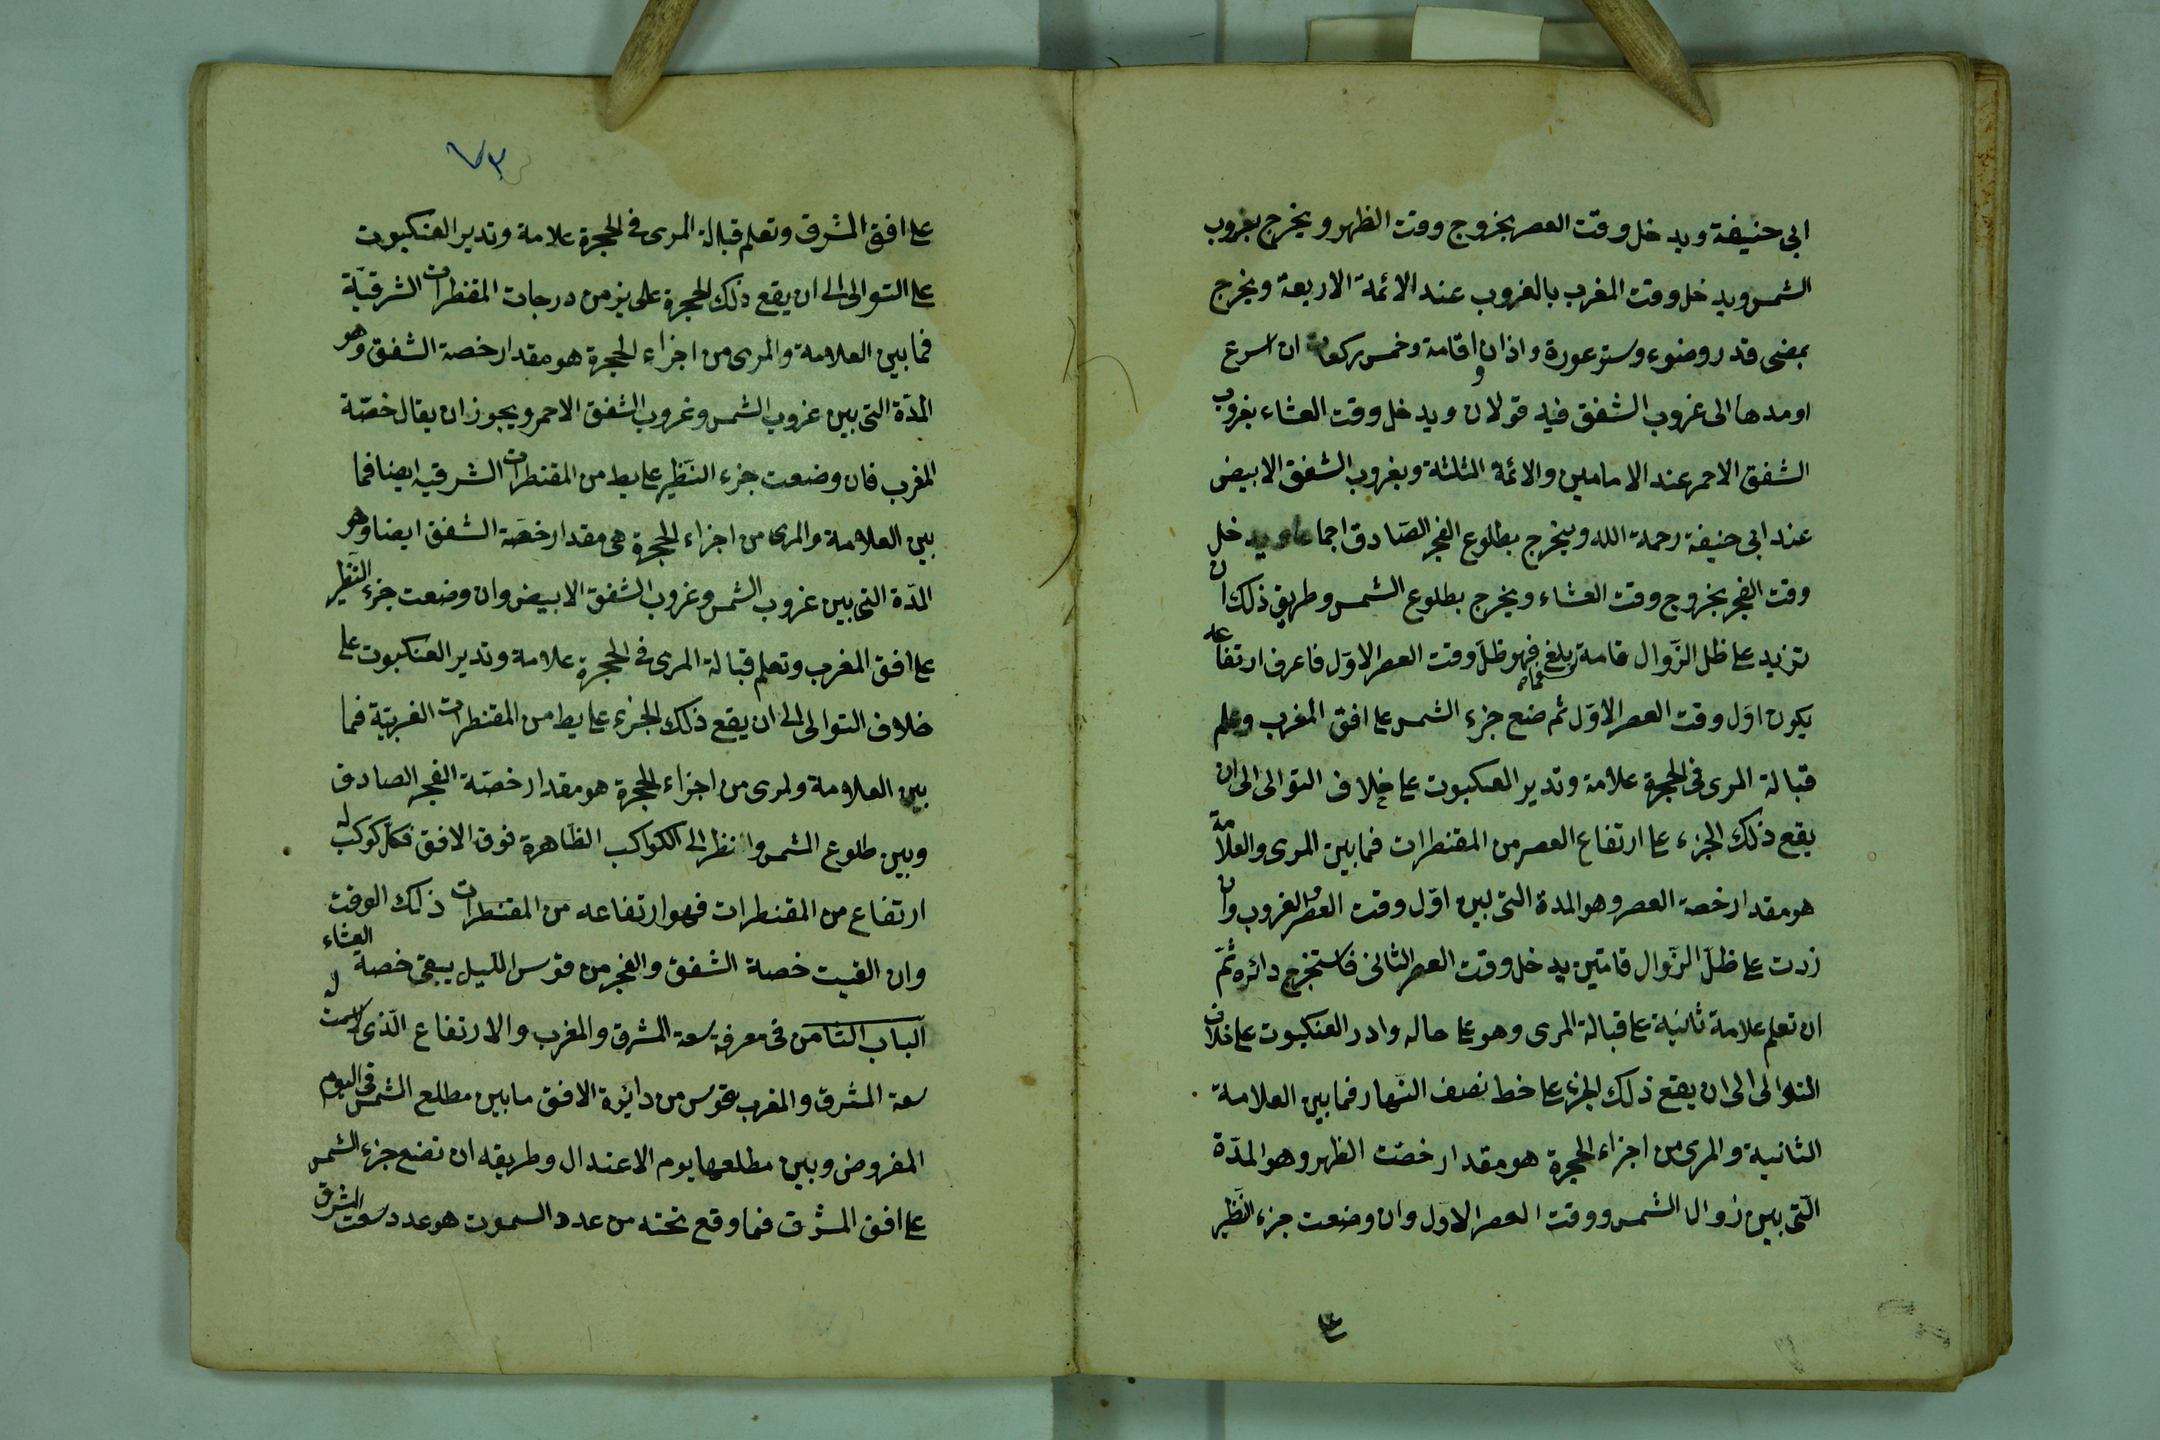 ابى حنيفة ويدخل وقت العصر بخروج وقت الظهر ويخرج بغروب
الشمس ويدخل وقت المغرب بالغروب عند الائمة الاربعة ويخرج
بمضى قدر وضوء وستر عورة واذان واقامة وخمس ركعات ان اسرع
او مدها الى غروب الشفق فيه قولان ويدخل وقت العشاء بغروب
الشفق الاحمر عند الامامين والائمة الثلثة وبغروب الشفق الابيض
عند ابى حنيفة رحمة الله ويخرج بطلوع الفجر الصّادق اجماعا ويدخل
وقت الفجر بخروج وقت العشاء ويخرج بطلوع الشمس وطريق ذلك ان
تزيد على ظل الزّوال قامة فما بلغ فهو ظلّ وقت العصر الاوّل فاعرف ارتفاعه
يكون اوّل وقت العصر الاوّل ثم ضع جزء الشمس على افق المغرب وعلم
قبالة المرى فى الحجرة علامة وتدير العنكبوت على خلاف التوالى الى ان
يقع ذلك الجزء على ارتفاع العصر من المقنطرات فما بين المرى والعلامة
هو مقدار خصة العصر وهو المدة التى بين اوّل وقت العصر والغروب وان
زدت على ظلّ الزّوال قامتين يدخل وقت العصر الثانى فاستخرج دائره ثمّ
ان تعلم علامة ثانية على قبالة المرى وهو على حاله وادر العنكبوت على خلاف
التوالى الى ان يقع ذلك الجزء على خط نصف النّهار فما بين العلامة
الثانية والمرى من اجزاء الحجرة هو مقدار خصّت الظهر وهو المدّة
الّتى بين زوال الشمس ووقت العصر الاوّل وان وضعت جزء النّظير
ع
٧٣
على افق المشرق وتعلم قبالة المرى فى الحجرة علامة وتدير العنكبوت
على التوالى الى ان يقع ذلك الحجرة على يز من درجات المقنطرات الشرقيّة
فما بين العلامة والمرى من اجزاء الحجرة هو مقدار خصة الشفق وهو
المدّة التى بين غروب الشمس وغروب الشفق الاحمر ويجوز ان يقال خصّة
المغرب فان وضعت جزء النّظير على يط من المقنطرات الشرقيه ايضا فما
بين العلامة والمرى من اجزاء الحجرة هى مقدار خصّة الشفق ايضا وهو
المدّة التى بين غروب الشمس وغروب الشفق الابيض وان وضعت جزء النّظير
على افق المغرب وتعلم قبالة المرى فى الحجرة علامة وتدير العنكبوت على
خلاف التوالى الى ان يقع ذلك الجزء على يط من المقنطرات الغربيّة فما
بين العلامة ولمرى من اجزاء الحجرة هو مقدار خصّة الفجر الصادق
وبين طلوع الشمس وانظر الى الكواكب الظّاهرة فوق الافق فكلّ كوكب له
ارتفاع من المقنطرات فهو ارتفاعه من المقنطرات ذلك الوقت
وان القيت خصة الشفق والفجر من قوس الليل يبقى خصة العشاء
الباب الثامن فى معرفة سعة المشرق والمغرب والارتفاع الّذى لا سمت له
سعة المشرق والمغرب قوس من دائرة الافق ما بين مطلع الشمس فى اليوم
المفروض وبين مطلعها يوم الاعتدال وطريقه ان تضع جزء الشمس
على افق المشرق فما وقع تحته من عدد السموت هو عدد سعت المشرق